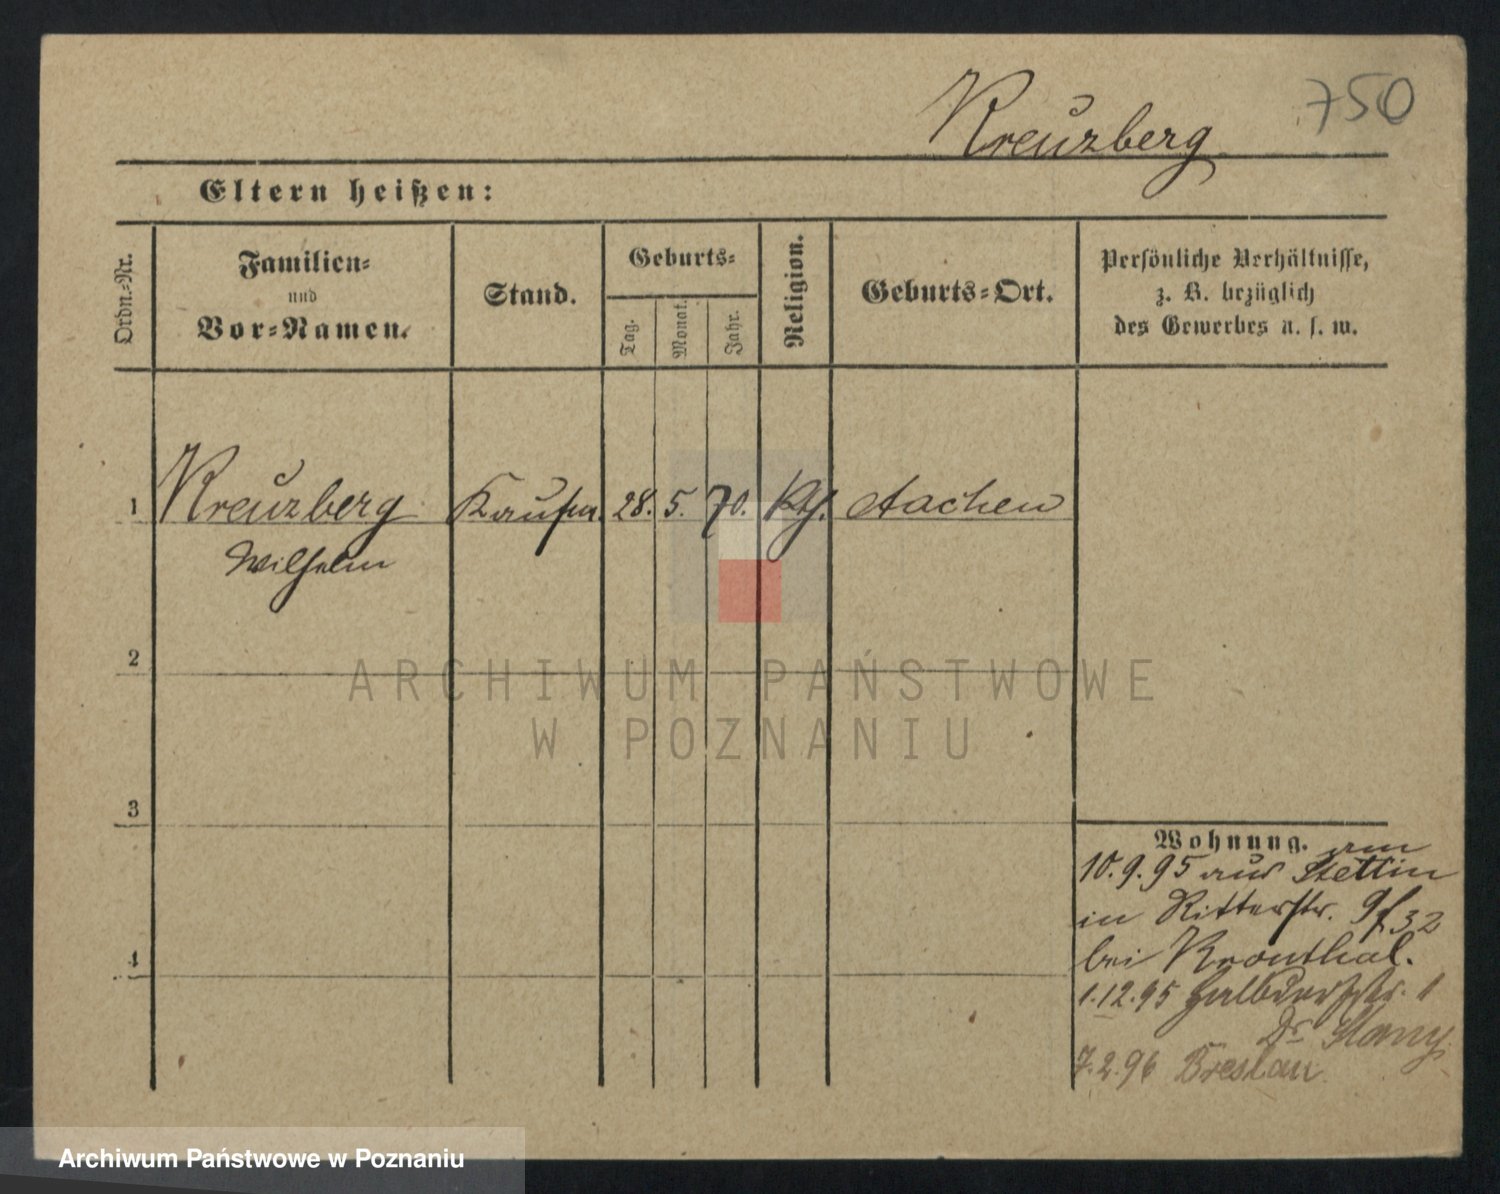 Kreuzberg 750
Eltern heißen:
Ordn.-Nr.
Familien-
und
Vor-Namen.
Stand.
Geburts-
Tag.
Monat.
Jahr.
Religion.
Geburts-Ort.
Persönliche Verhältnisse,
z. B. bezüglich
des Gewerbes u. s. w.
1 Kreuzberg Kaufm. 28. 5. 70. Kth. Aachen
Wilhelm
2
3
4
Wohnung. am
10.9.95 aus Stettin
in Ritterstr. 32
bei Kronthal.
1.12.95 Halbdorfstr. 1
Dr
7.2.96 Breslau
ARCHIWUM PAŃSTWOWE
W POZNANIU
Archiwum Państwowe w Poznaniu